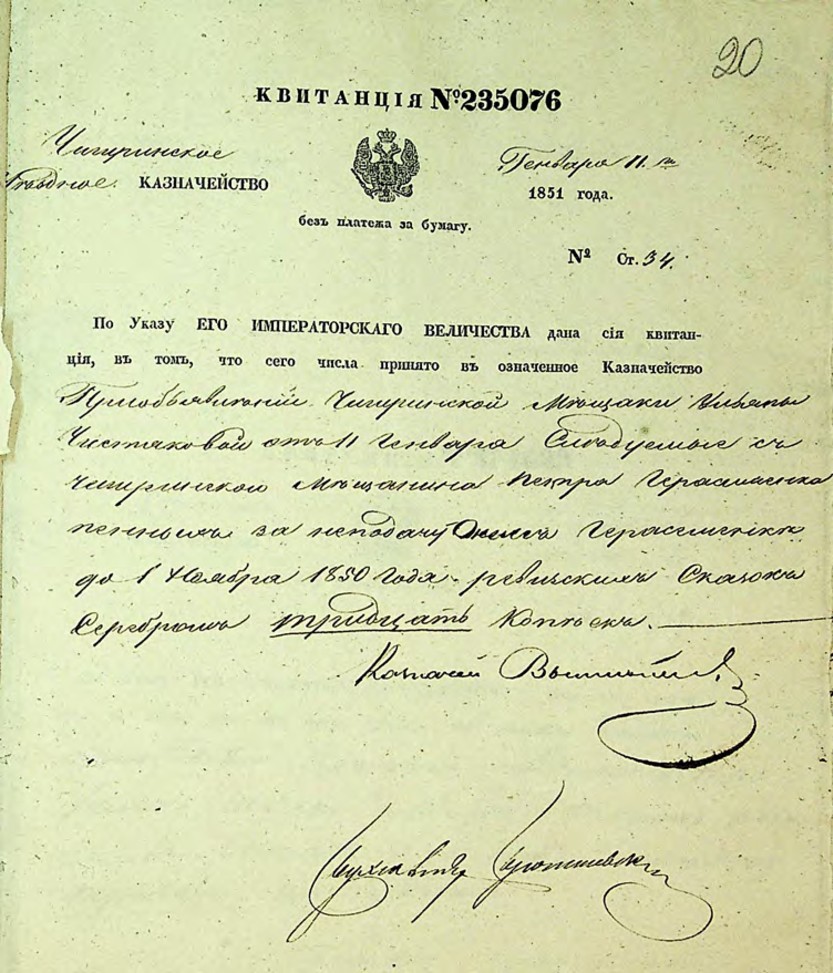 20
КВИТАНЦІЯ №235076
Чигиринское
Уѣздное КАЗНАЧЕЙСТВО
Генваря 11 го
1851 года.
безъ платежа за бумагу.
№ Ст. 34.
По Указу ЕГО ИМПЕРАТОРСКАГО ВЕЛИЧЕСТВА дана сія квитан-
ція, въ томъ, что сего числа принято въ означенное Казначейство
Чигиринской Мѣщанки Ульяны
Чистяковой отъ 11 Генваря Слѣдуемые съ
Чигиринского Мѣщанина Петра Герасименка
пенныхъ за неподачу Онымъ Герасименкомъ
до 1 Ноября 1850 Года ревизскихъ Сказокъ
Серебромъ тридцать Копѣекъ.
Казначей